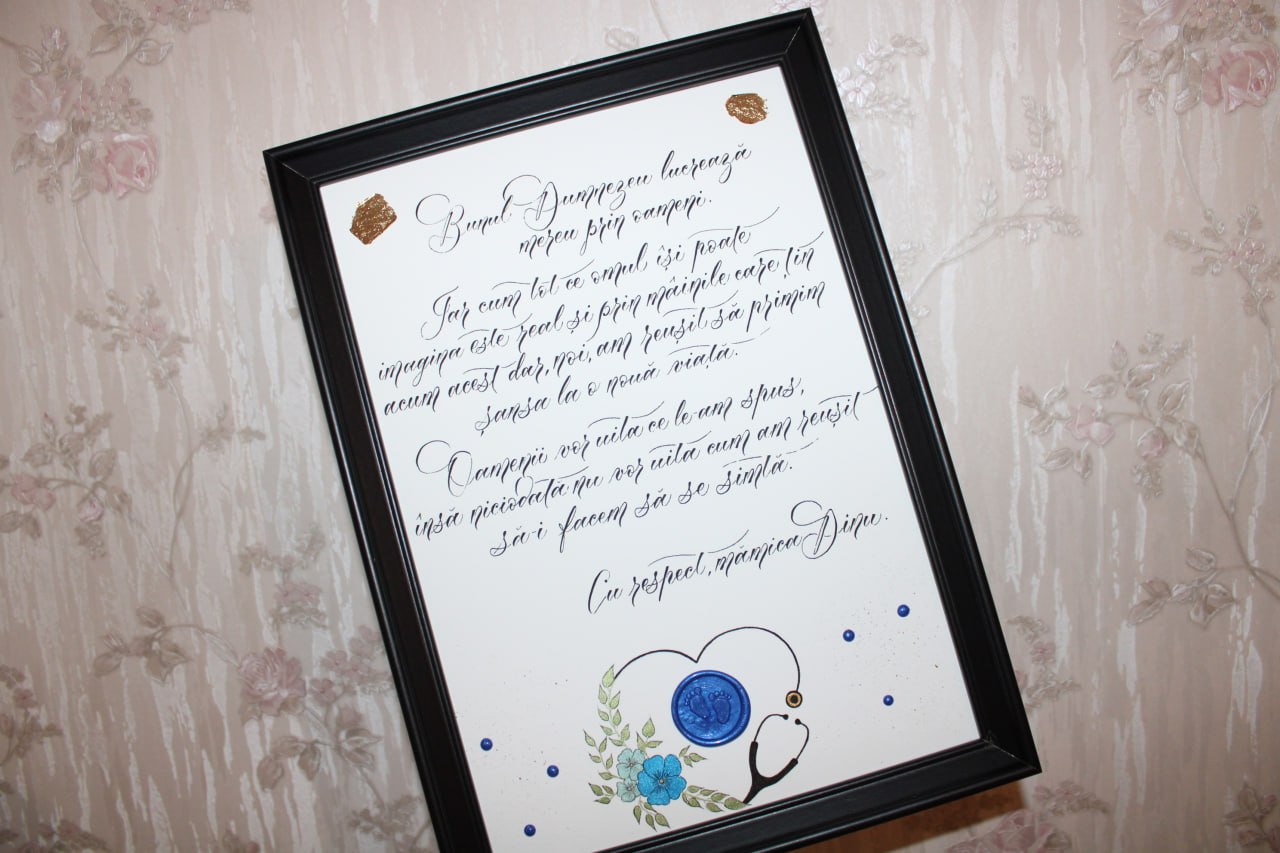 Bunul Dumnezeu lucrează
mereu prin oameni.
Iar cum tot ce omul își poate
imagina este real și prin mâinile care țin
acum acest dar, noi, am reușit să primim
șansa la o nouă viață.
Oamenii vor uita ce le-am spus,
însă niciodată nu vor uita cum am reușit
să-i facem să se simtă.
Cu respect, mămica Dinu.